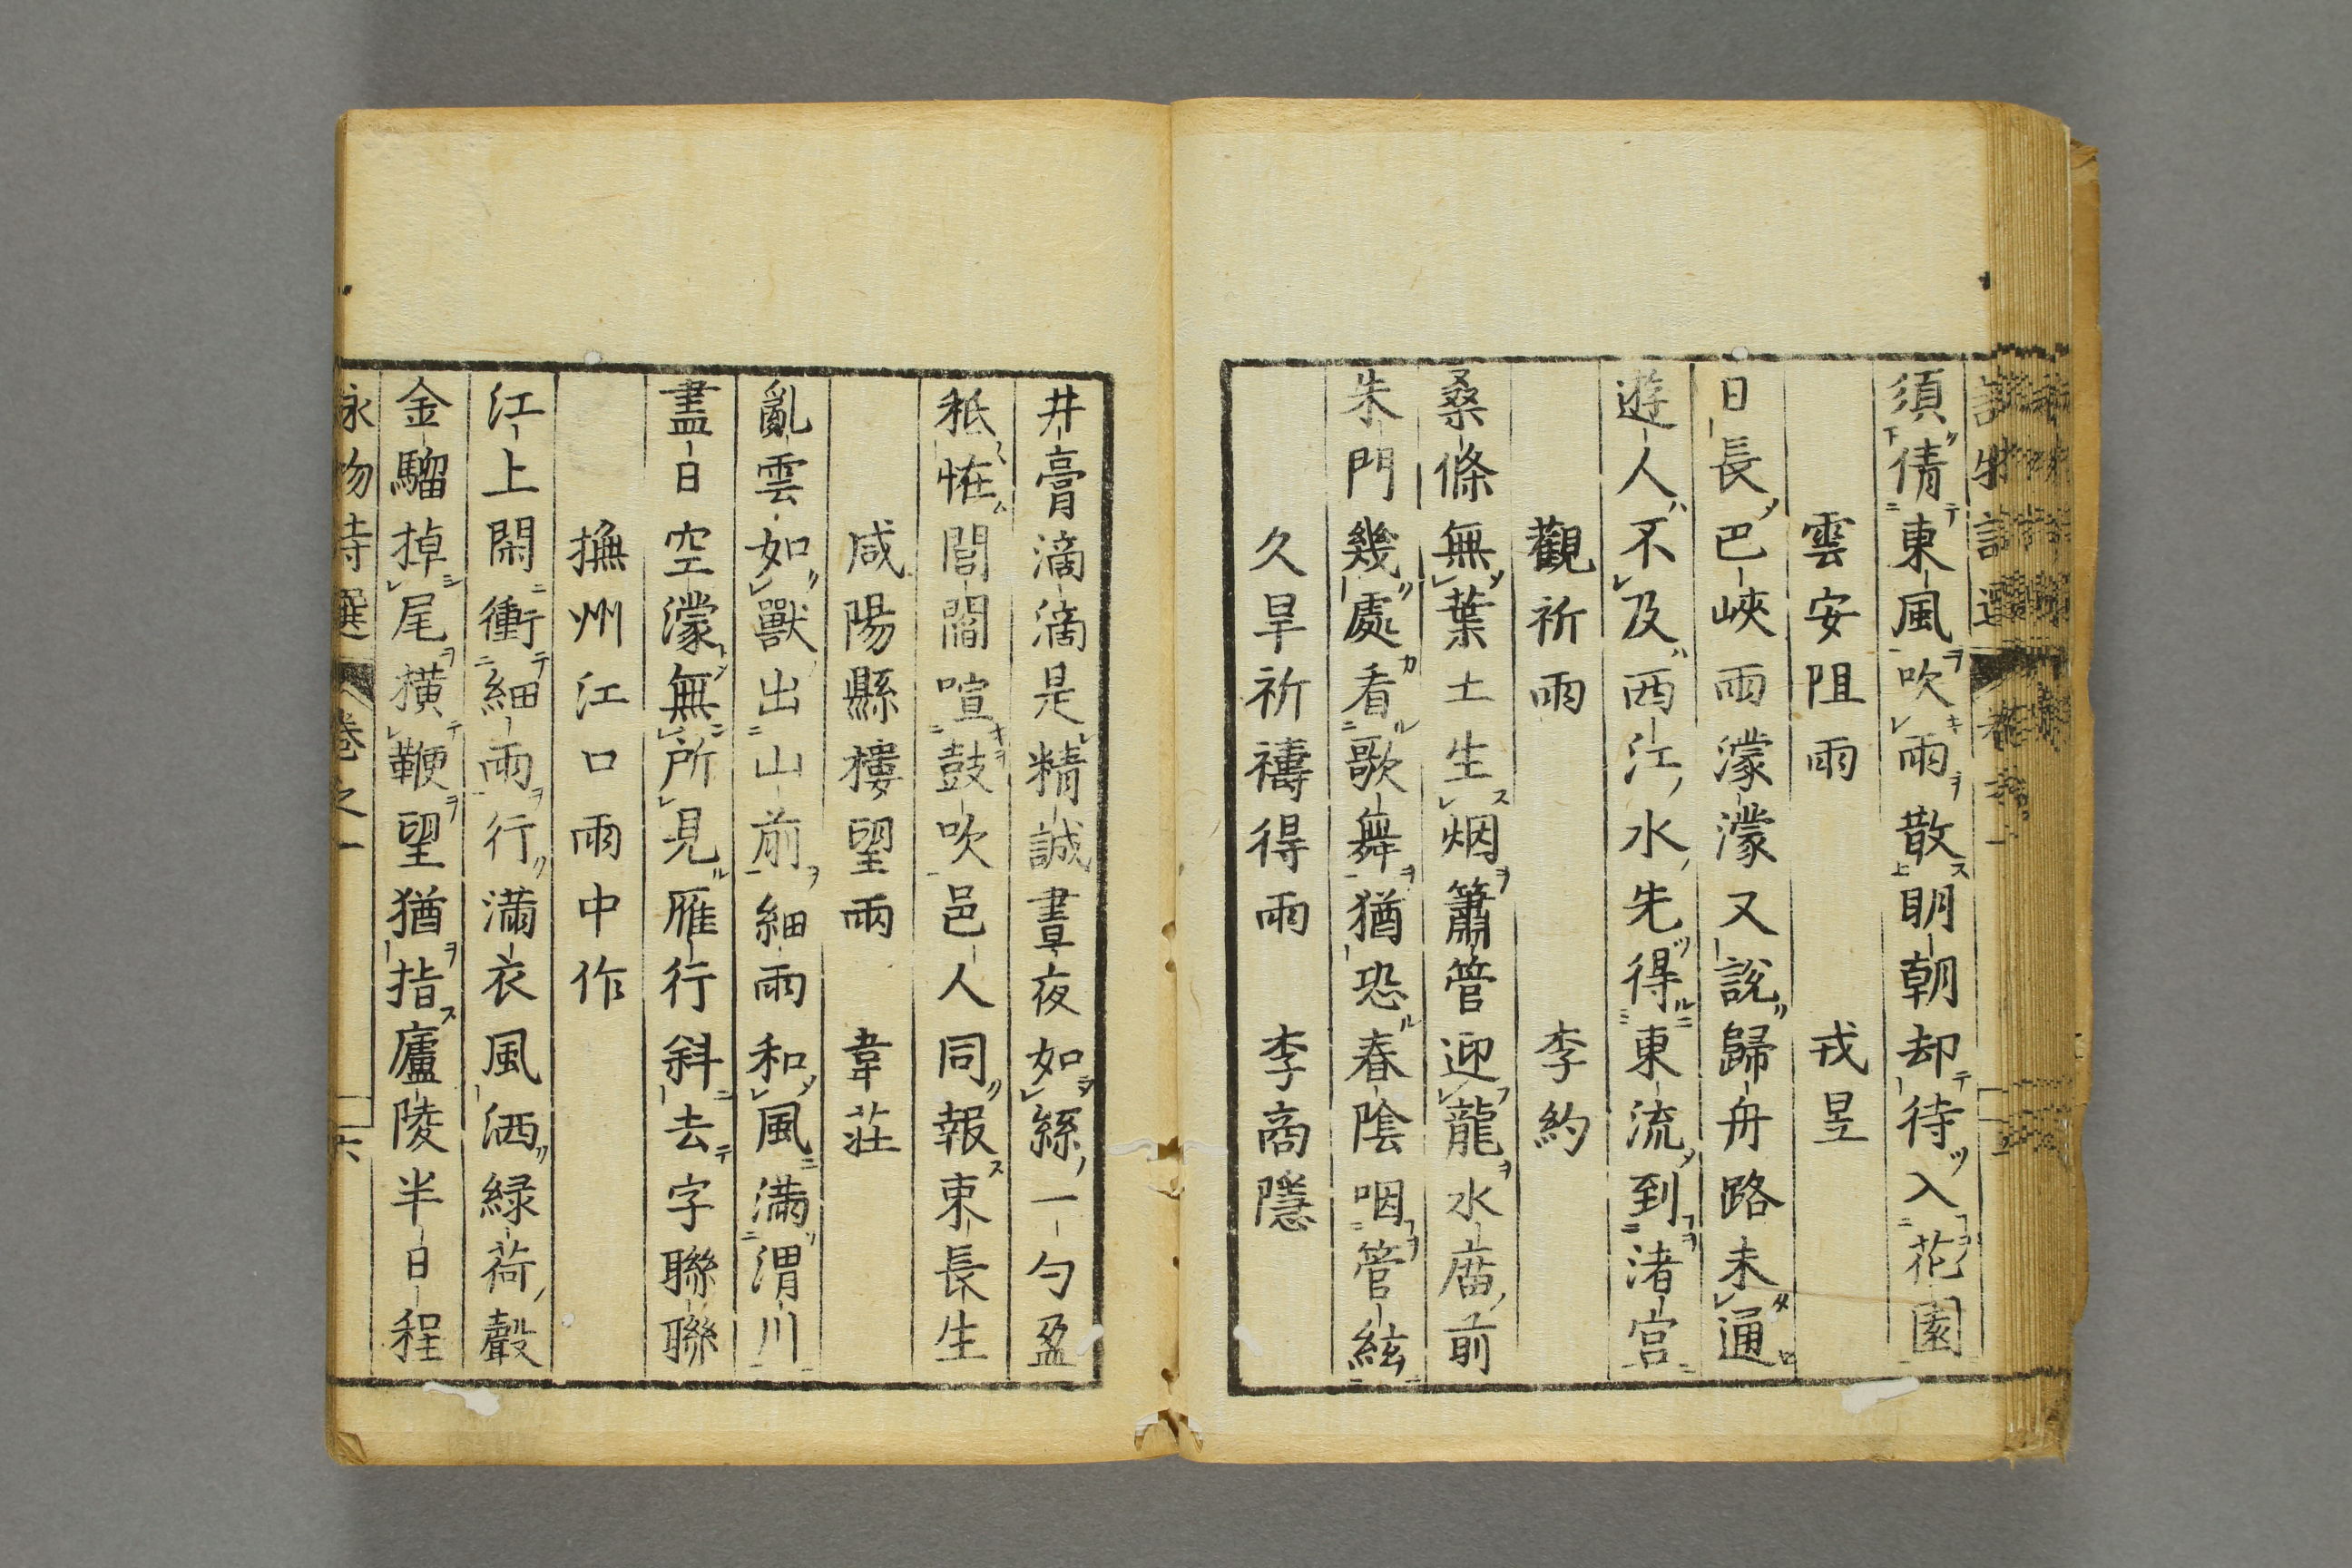 須倩東風吹雨散明朝却待入花園
雲安阻雨　戎昱
日長巴峽雨濛濛又說歸舟路未通
遊人不及西江水先得東流到渚宮
觀祈雨　李約
桑條無葉土生烟簫管迎龍水庿前
朱門幾處看歌舞猶恐春陰咽管絃
久旱祈禱得雨　李商隱
井膏滴滴是精誠晝夜如絲一勺盈
秖恠閭閻喧鼓吹邑人同報束長生
咸陽縣樓望雨　韋莊
亂雲如獸出山前細雨和風滿渭川
盡日空濛無所見雁行斜去字聯聯
撫州江口雨中作
江上閑衝細雨行滿衣風洒緑荷聲
金騮掉尾橫鞭望猶指廬陵半日程
詠物詩選　卷之一　六